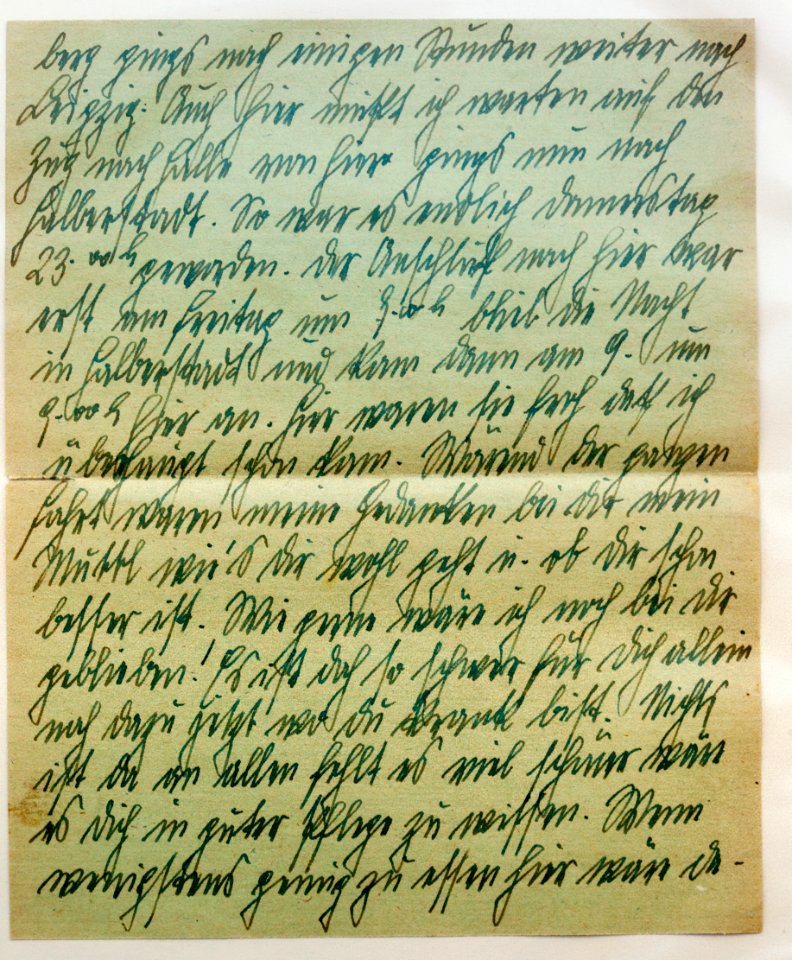 berg gings nach einigen Stunden weiter nach
Leipzig. Auch hier mußt ich warten auf den
Zug nach Halle von hier gings nun nach
Halberstadt. So war es endlich Donnerstag
23.ooh geworden. Der Anschluß nach hier war
erst am Freitag um 9.ooh blieb die Nacht
in Halberstadt und kam dann am 9. um
9.ooh hier an. Hier waren sie froh daß ich
überhaupt schon kam. Wärend der ganzen
Fahrt waren meine Gedanken bei dir mein
Muttl wie's dir wohl geht u. ob dir schon
besser ist. Wie gerne wäre ich noch bei dir
geblieben! Es ist doch so schwer für Dich allein
noch dazu jetzt wo du krank bist. Nichts
ist da an allen fehlt es viel schöner wäre
es dich in guter Pflege zu wissen. Wenn
wenigstens genug zu essen hier wäre de-